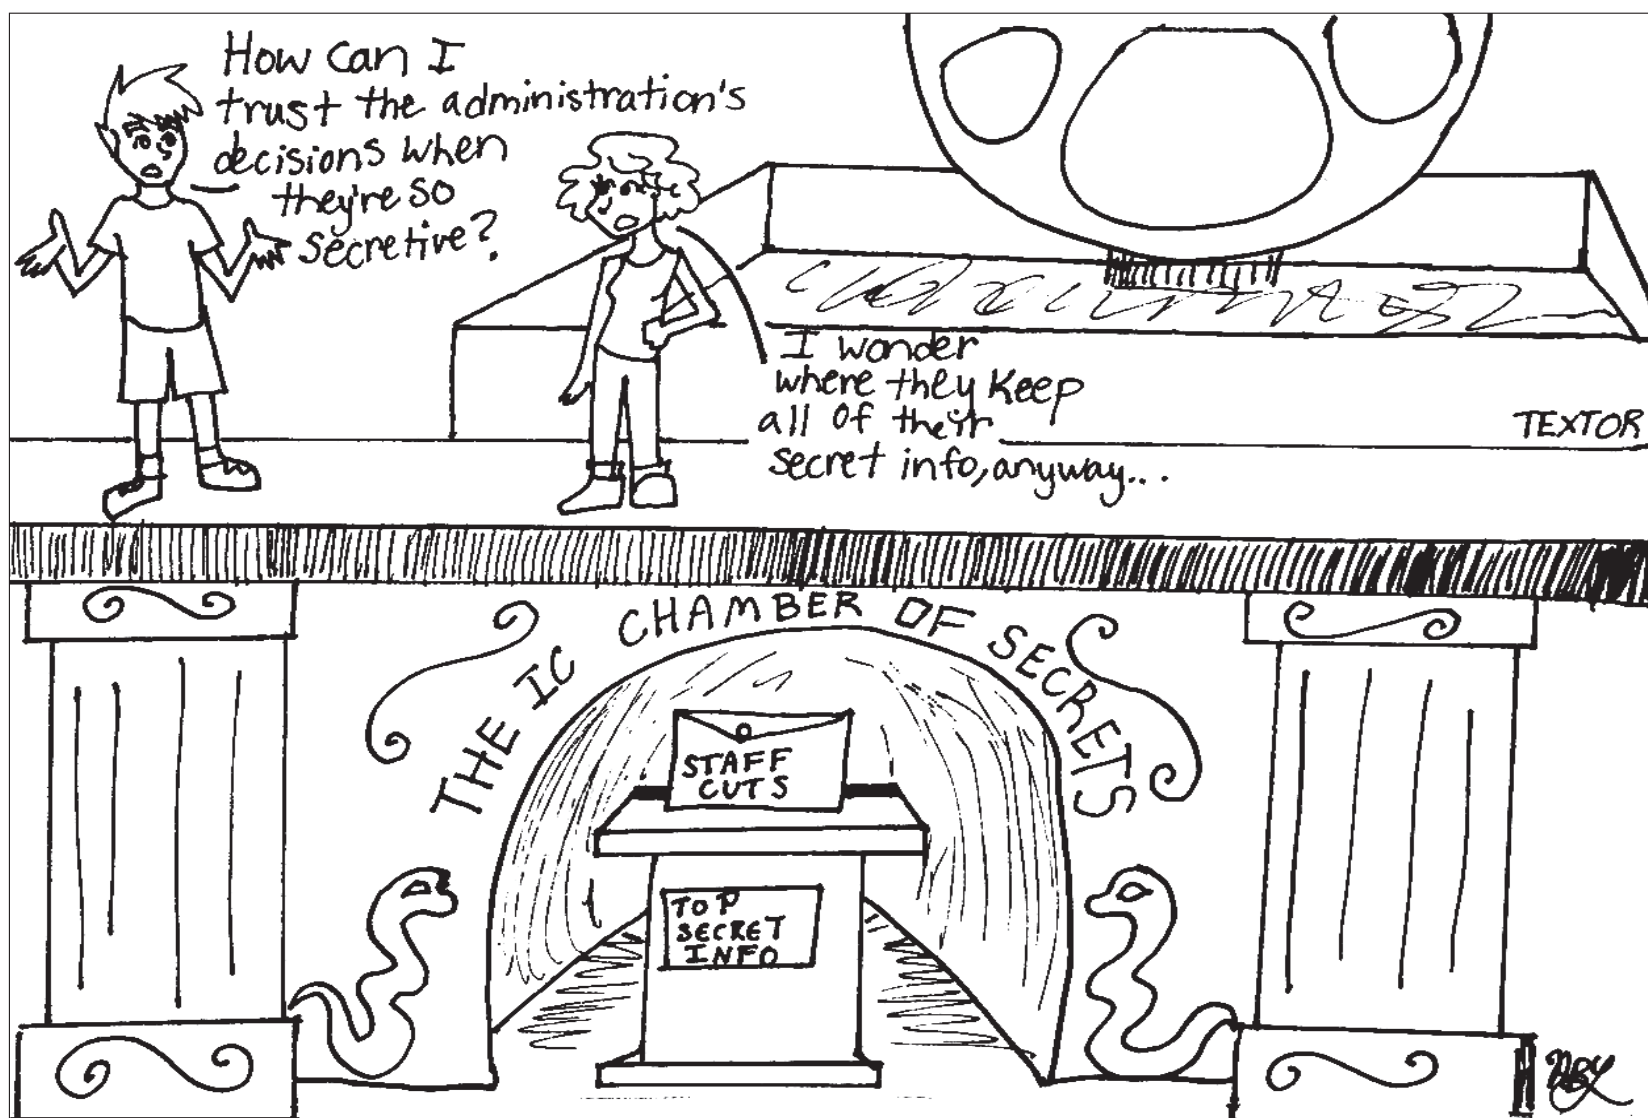 How can I
trust the administration's
decisions when
they're so
secretive?
I wonder
where they keep
all of their
secret info, anyway...
TEXTOR
THE IC CHAMBER OF SECRETS
STAFF
CUTS
TOP
SECRET
INFO